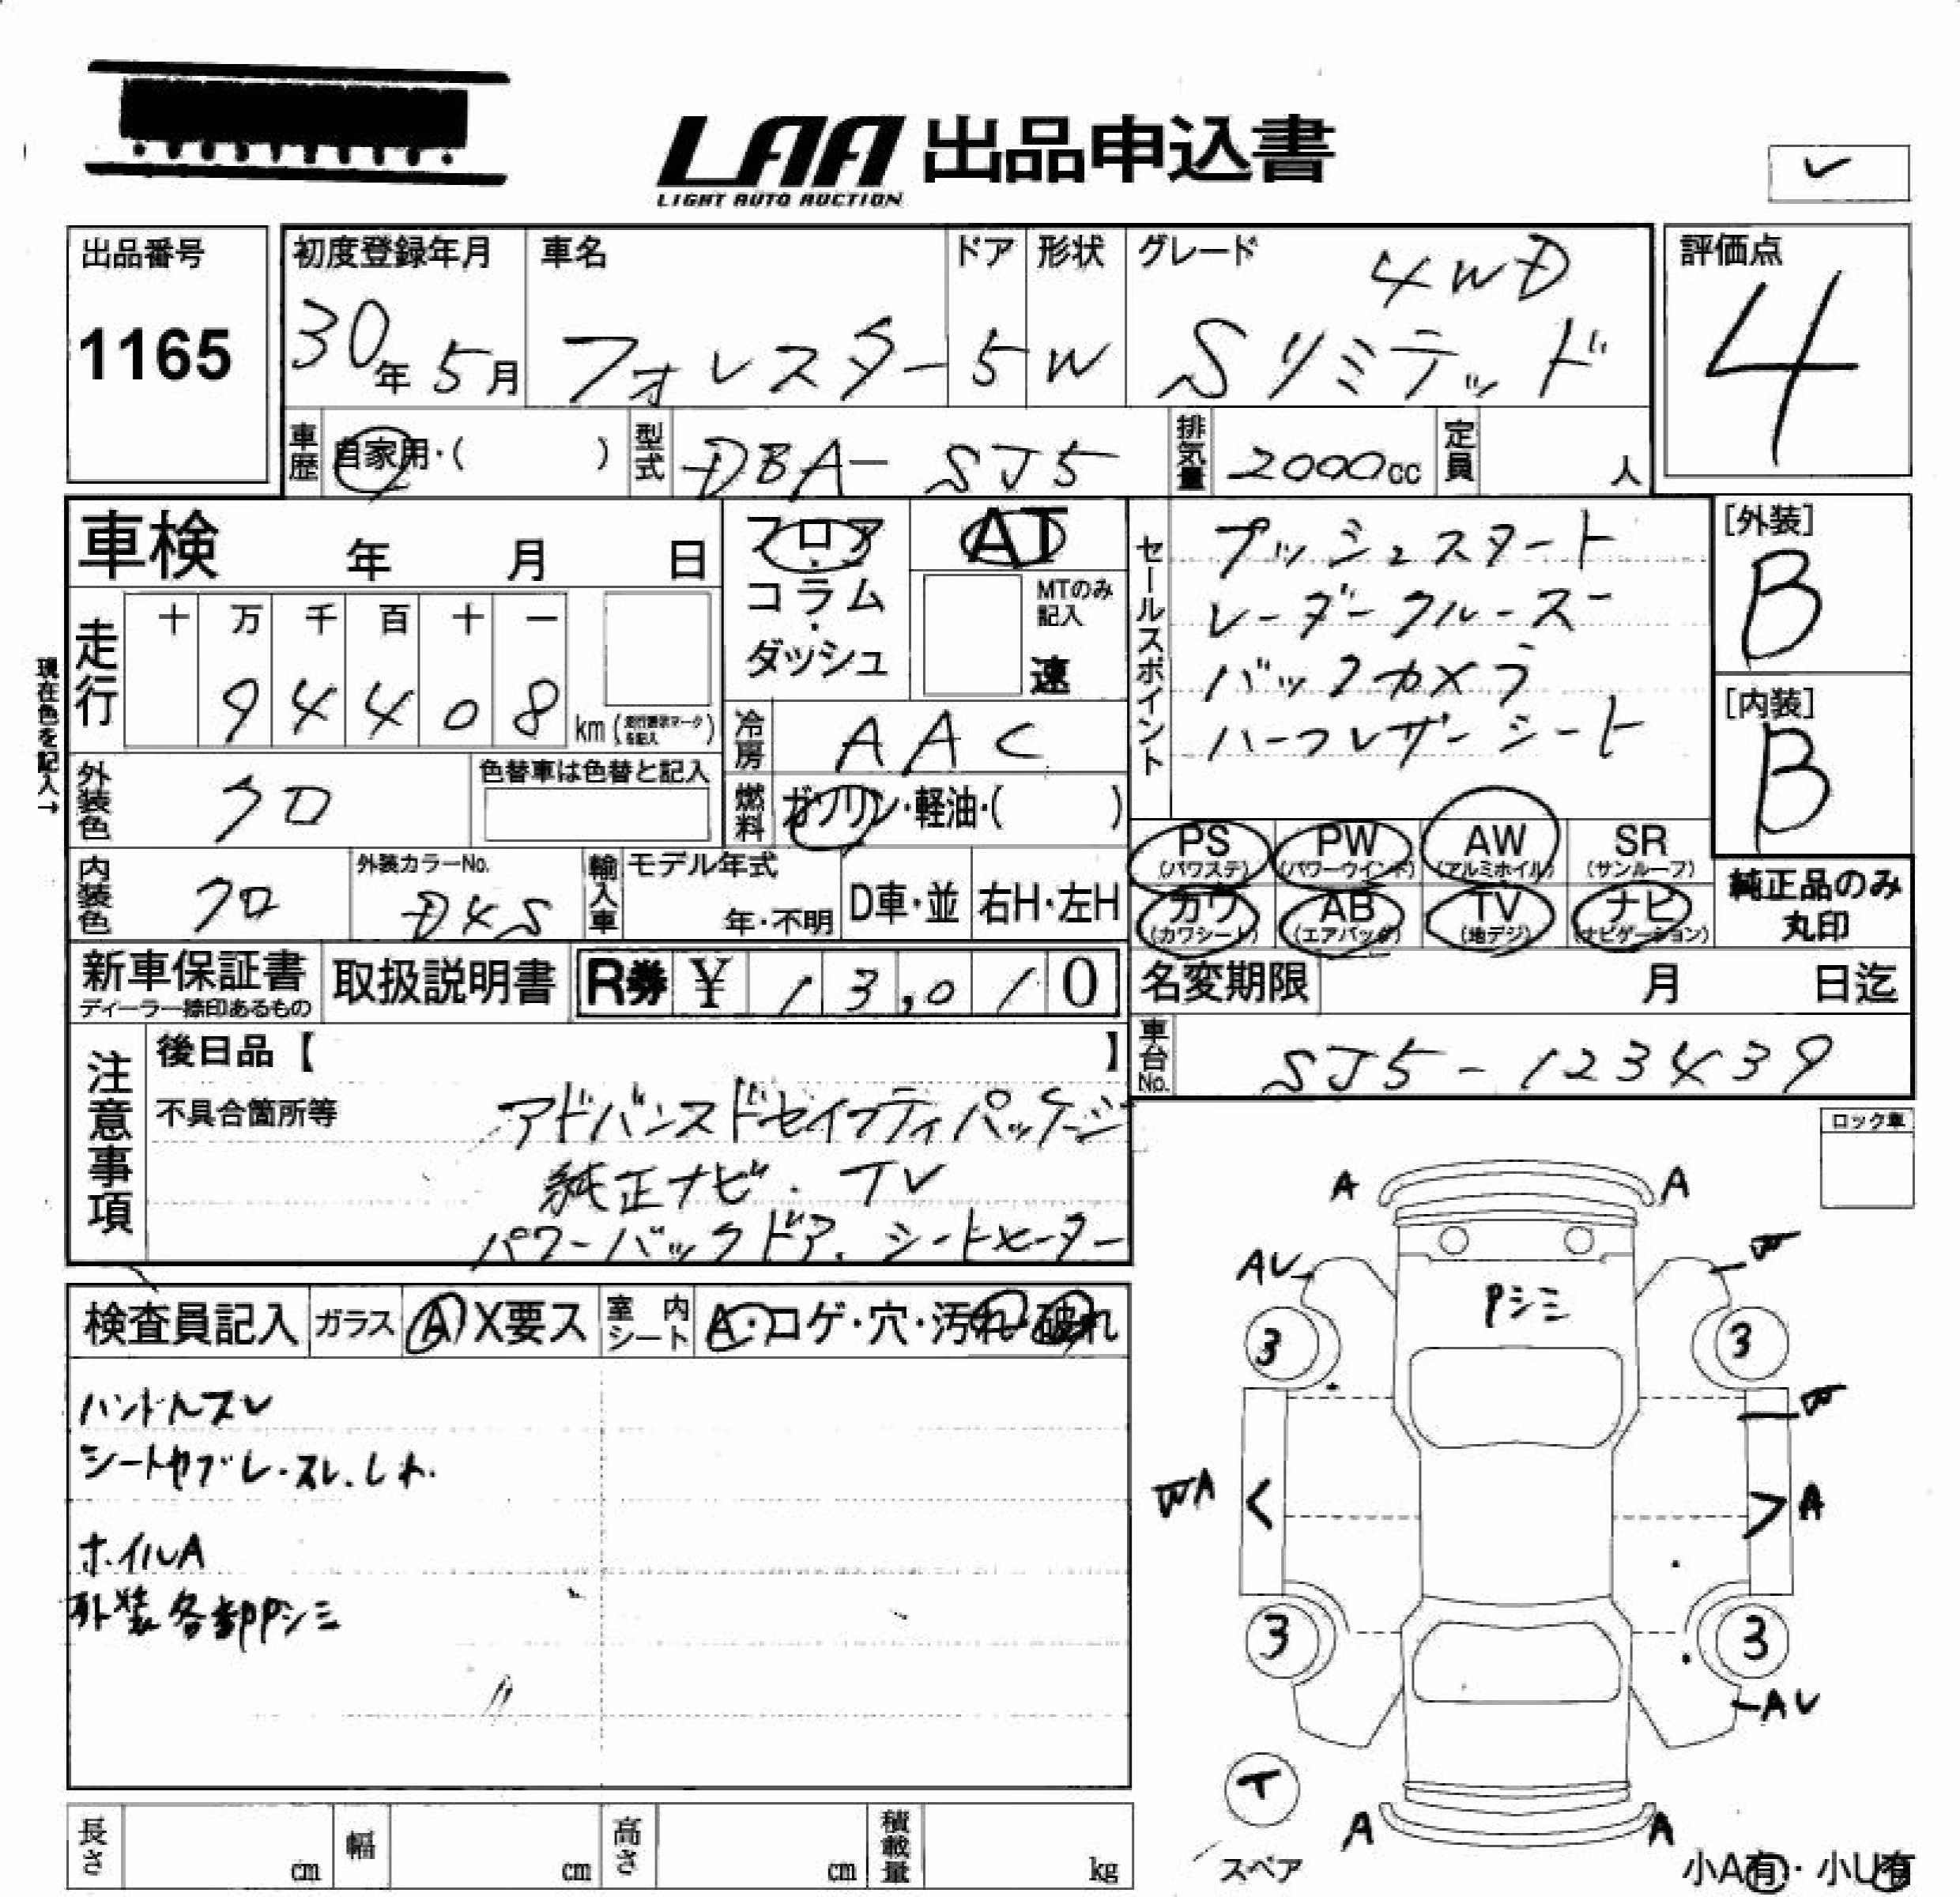 LAA 出品申込書
LIGHT AUTO AUCTION
出品番号
1165
初度登録年月
30年 5月
車名
フォレスター
ドア
5
形状
W
グレード
4WD
Sリミテッド
評価点
4
車歴 自家用・( )
型式 DBA-SJ5
排気量 2000cc
定員 人
車検 年 月 日
フロア・コラム・ダッシュ
AT
MTのみ記入
速
セールスポイント
プッシュスタート
レーダークルーズ
バックカメラ
ハーフレザーシート
[外装]
B
[内装]
B
現在色を記入→
走行
十 万 千 百 十 一
9 4 4 0 8 km
冷房 AAC
外装色 クロ
色替車は色替と記入
燃料 ガソリン・軽油・( )
PS (パワステ) PW (パワーウインド) AW (アルミホイル) SR (サンルーフ)
カワ (カワシート) AB (エアバッグ) TV (地デジ) ナビ (ナビゲーション)
純正品のみ丸印
内装色 クロ
外装カラーNo.
D4S
輸入車
モデル年式
年・不明
D車・並
右H・左H
新車保証書
ディーラー捺印あるもの
取扱説明書
R券 ¥ 13,010
名変期限 月 日迄
車台No. SJ5-123439
注意事項
後日品【 】
不具合箇所等
アドバンスドセイフティパッケージ
純正ナビ・TV
パワーバックドア、シートヒーター
ロック車
検査員記入
ガラス A X要ス
室内シート A・コゲ・穴・汚れ・破れ
ハンドルスレ
シートヤブレ・スレ・シワ
ホイルA
外装各部Pシミ
A A
AU W
Pシミ
3 3
W
WA A
3 3
AU
T
スペア
A A
小A有・小U有
長さ cm
幅 cm
高さ cm
積載量 kg